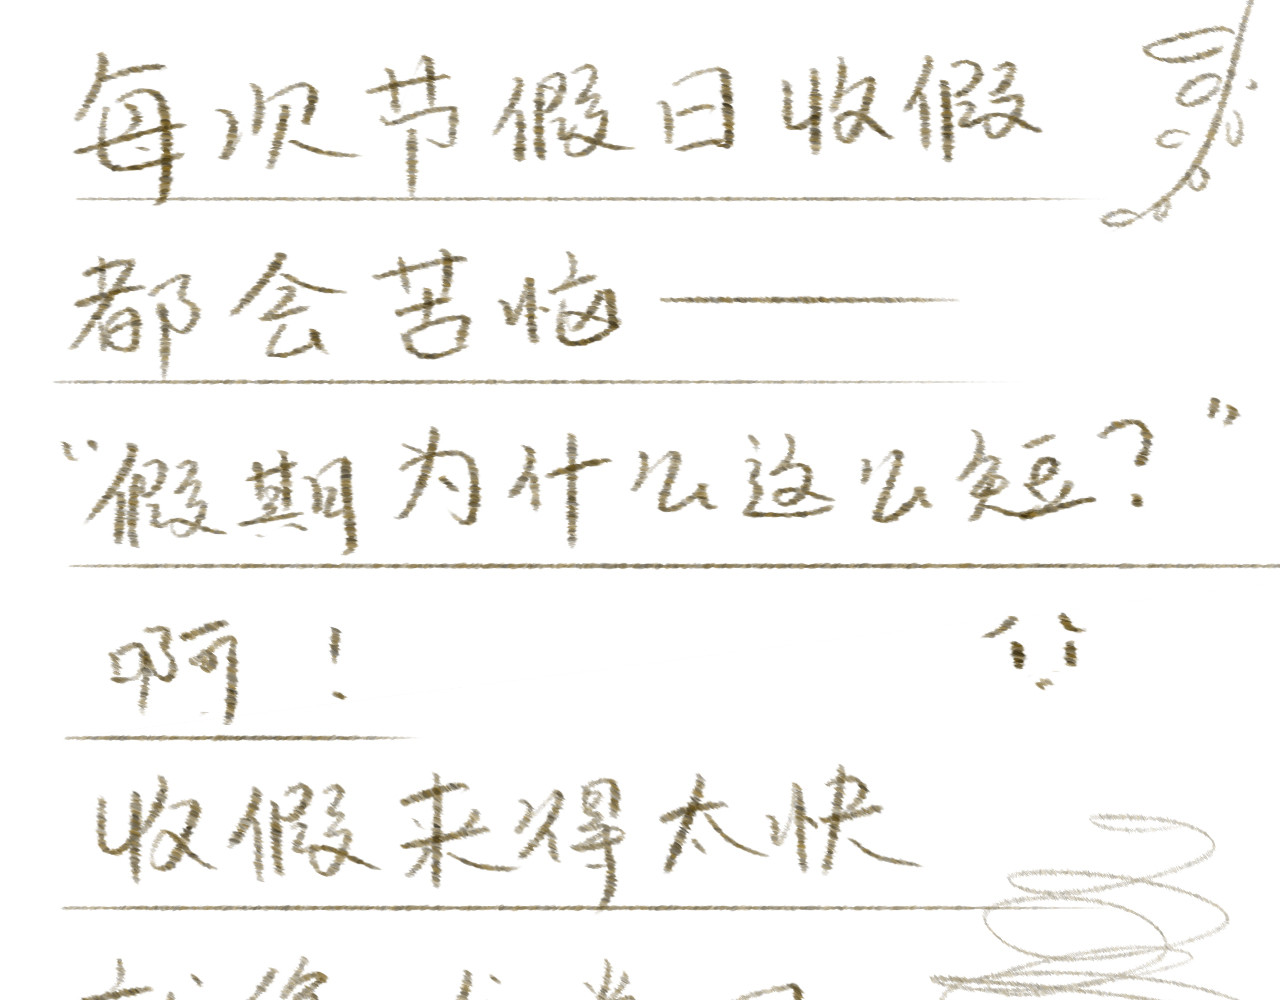 每次节假日收假
都会苦恼——
“假期为什么这么短？”
啊！
收假来得太快